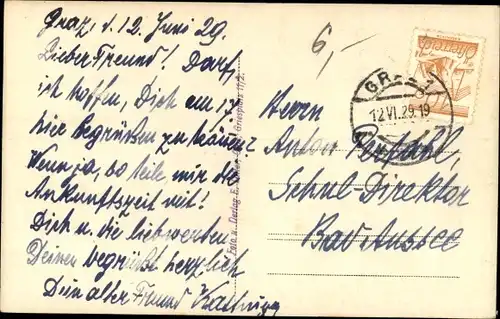 Graz, d. 12. Juni 29.
Lieber Freund! Darf
ich hoffen, Dich am 17.
hier begrüßen zu können?
Wenn ja, so teile mir die
Ankunftszeit mit!
Dich u. die liebwerten
Deinen begrüßt herzlich
Dein alter Freund
6,–
Foto u. Verlag E. Griesplatz 11/2.
Österreich
GRAZ
12.VI.29.19
Herrn
Anton
Schul Direktor
Bad Aussee